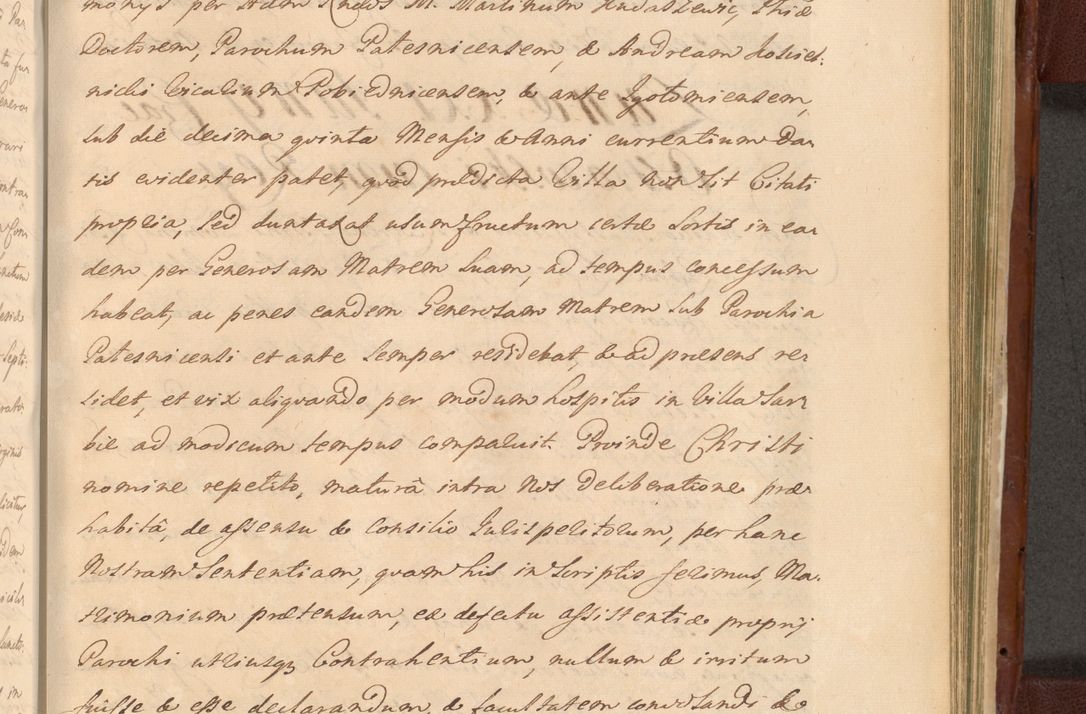 monijs per Adm Rndos M. Martinum Hudaszewic, Phiæ
Doctorem, Parochum Patesnicensem, & Andream Kosciel:
nicki Vicarium Pobiednicensem, & ante Igotomiensem,
sub die decima qvinta Mensis & Anni currentium Da
tis evidenter patet, qvod prædicta Villa non sit Citati
propria, sed duntaxat usumfructum certæ Sortis in ea
dem per Generosam Matrem Suam, ad tempus concessum
habeat, ac penes eandem Generosam Matrem sub Parochia
Patesnicensi et ante semper residebat, & ad præsens re
sidet, et vix aliqvando per modum hospitis in Villa Sar
bie ad modicum tempus comparuit. Proinde Christi
nomine repetito, maturâ intra Nos deliberatione præ
habitâ, de assensu & Consilio Jurisperitorum, per hanc
Nostram Sententiam, qvam his in Scriptis ferimus, Ma.
trimonium prætensum, ex defectu assistentiæ proprij
Parochi utriusq3 Contrahentium, nullum & irritum
fuisse & esse declarandum, & facultatem conversandi &